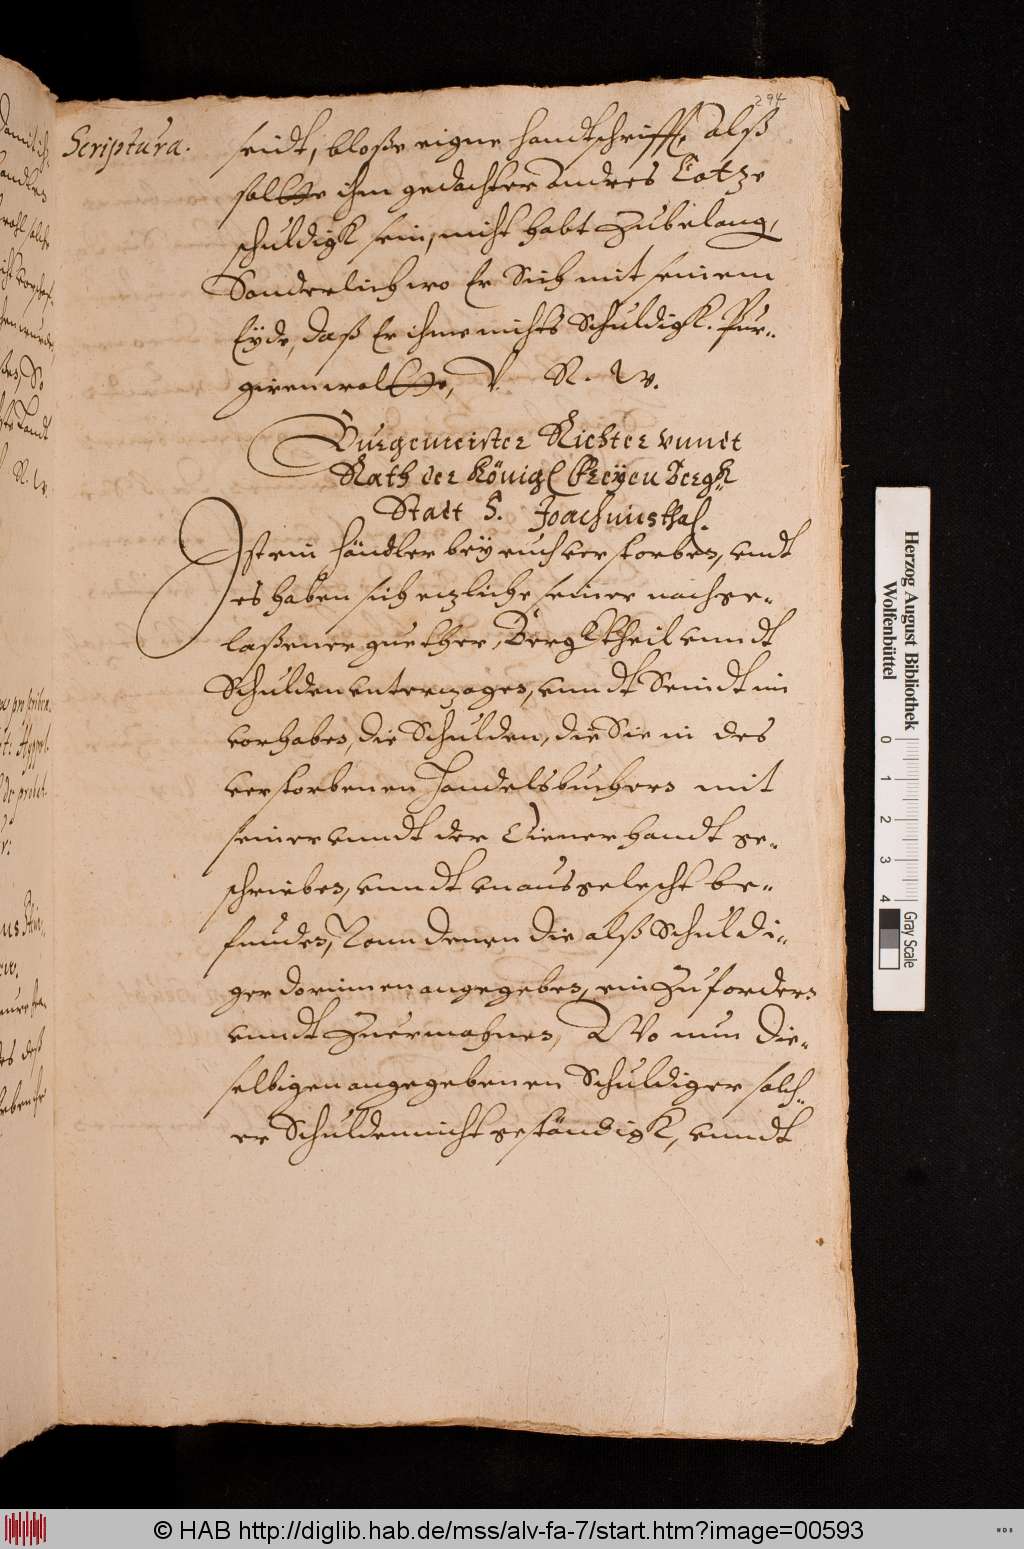 294
Scriptura.
seidt, bloße eigne handtschrifft, alß
solte ihm gedachter Andres Lotze
schuldigk sein, nicht habt Zubelang,
Sonderlich wo Er Sich mit seinem
Eyde, daß Er ihme nichts Schuldigk. Pur-
giren wolte, V. R. W.
Burgemeister Richter vnndt
Rath der Königl Freyen Bergk
Stadt S. Joachimsthal.
Ist ein händler bey euch verstorben, vndt
es haben sich etzliche seiner nachge-
laßener guether, Bergktheil vnndt
Schulden unterzogen, vnndt Seindt im
vorhaben, die Schulden, die Sie in des
verstorbenen Handelsbuchern mit
seiner vnndt der Diener handt ge-
schrieben, vnndt unausgelescht be-
funden, Vonn denen die alß Schuldi-
ger dorinnen angegeben, ein Zufordern
vnndt Zuermahnen, Wo nun die-
selbigen angegebenen Schuldiger solch-
er Schulden nicht geständigk, vnndt
Herzog August Bibliothek
Wolfenbüttel
0 1 2 3 4
Gray Scale
© HAB http://diglib.hab.de/mss/alv-fa-7/start.htm?image=00593